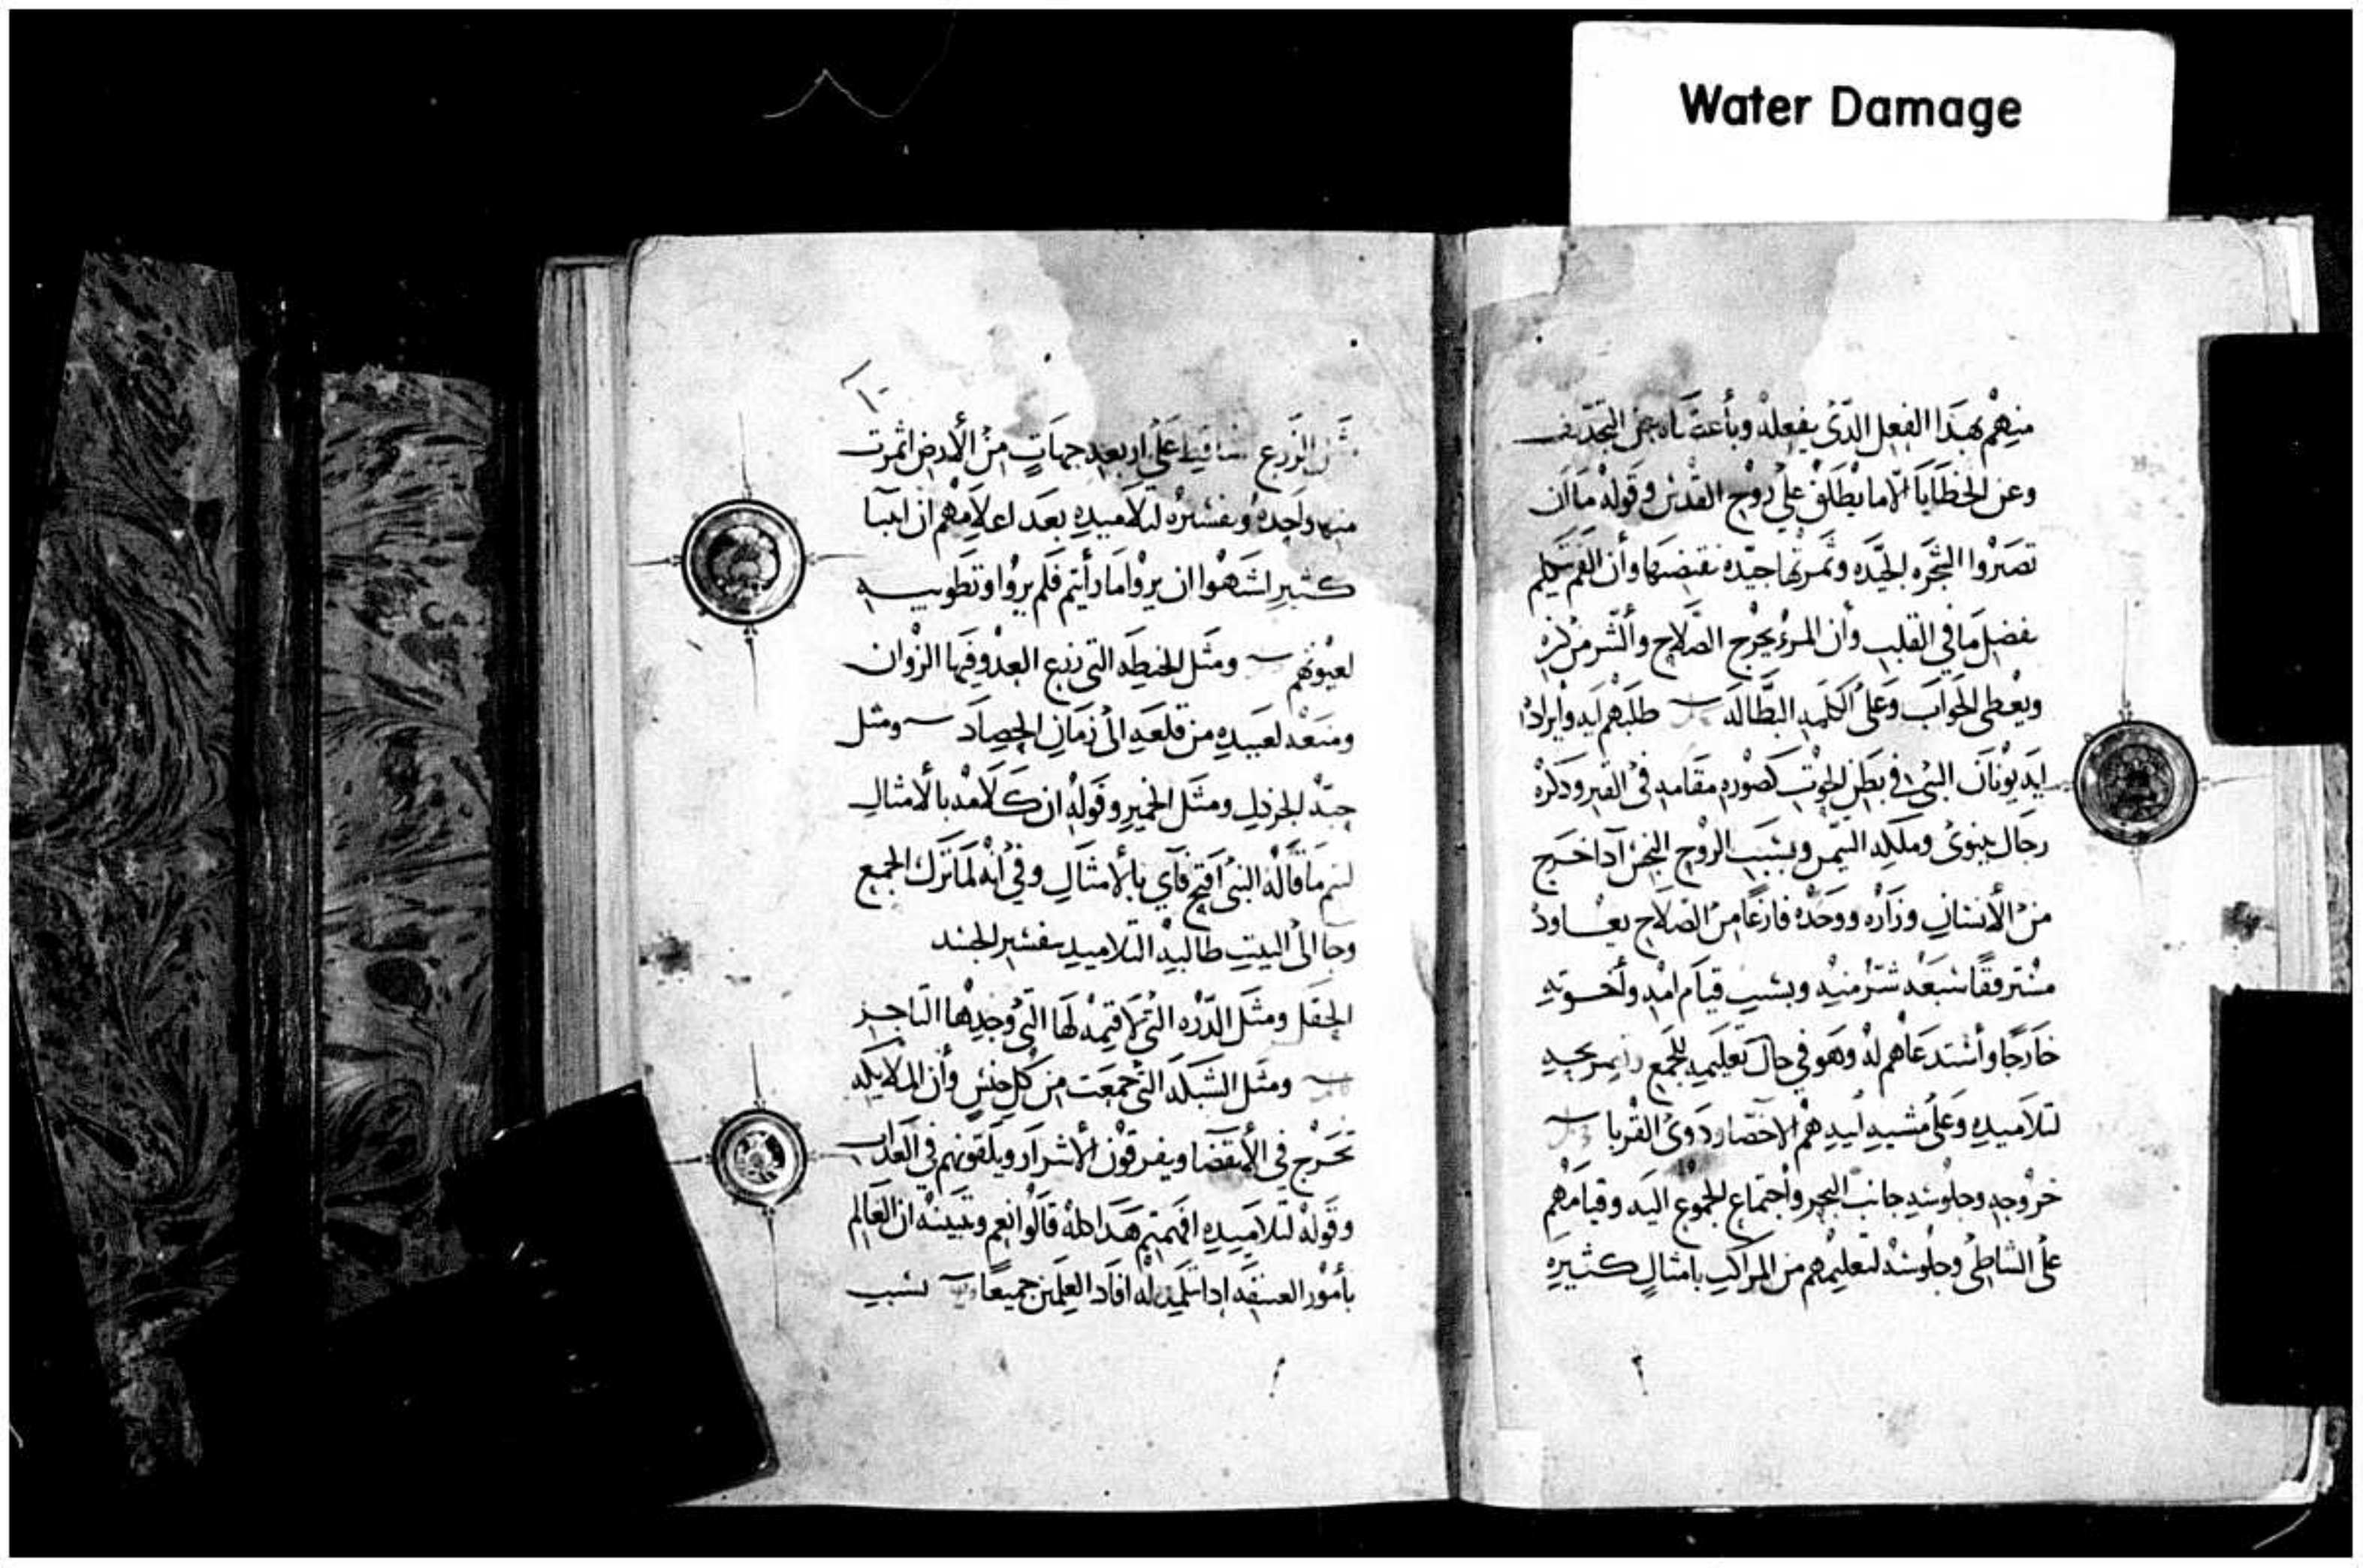 Water Damage
منهم بهذا الفعل الذى يفعله وبأعتناه عن التجديف
وعن الخطايا الا ما يطلق على روح القدس وقوله ما ان
تصيروا الشجره الجيده وثمرتها جيده نقيضها وأن الفم يتكلم
بفضل ما فى القلب وأن المرء يخرج الصلاح والشر من كنزه
ويعطى الجواب وعلى الكلمه البطاله طلبهم ايه وايراده
ايه يونان النبى فى بطن الحوت كصوره مقامه فى القبر وذكره
رجال نينوى وملكه التيمن وبسبب الروح النجس اذا خرج
من الأنسان وزاره ووجده فارغا من الصلاح يعاود
مسترفقا سبعه شر منه وبسبب قيام امه وأخوته
خارجا وأستدعاهم له وهو فى حال تعليمه للجمع
لتلاميذه وعلى مشيه ابيه هم الاخصا وذوى القربا
خروجه وجلوسه جانب البحر وأجتماع الجموع اليه وقيامهم
على الشاطى وجلوسه لتعليمهم من المراكب بامثال كثيره
٢
مثل الزرع ساقط على اربعه جهات من الأرض اثمرت
منها واحده وتفسيره لتلاميذه بعد اعلامهم ان انبيا
كثير اشتهوا ان يروا ما رأيتم فلم يروا وتطويبه
لعيونهم ومثل الحنطه التى زرع العدو فيها الزوان
ومنعه لعبيده من قلعه الى زمان الحصاد ومثل
حبه الخردل ومثل الخمير وقوله ان كلامه بالامثال
ليتم ما قاله النبى افتح فاى بالأمثال وفى أنه لما ترك الجمع
وجا الى البيت طالبه التلاميذ بتفسير
الحقل ومثل الدره التى لا قيمه لها التى وجدها التاجر
ومثل الشبكه التى جمعت من كل جنس وأن الملايكه
تخرج فى الأنقضا ويفرقون الأشرار ويلقونهم فى العذاب
وقوله لتلاميذه افهمتم هذا كله قالوا نعم وتبينه ان العالم
بأمور العتيقه اذا تلمذ له افاد العلمين جميعا بسبب